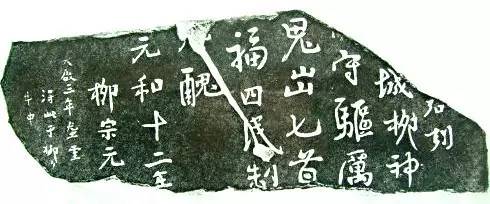 石刻
城柳神
守驅厲
鬼出匕首
福四民制
醜
元和十二年
柳宗元
天啟三年龔重
得此於柳
井中